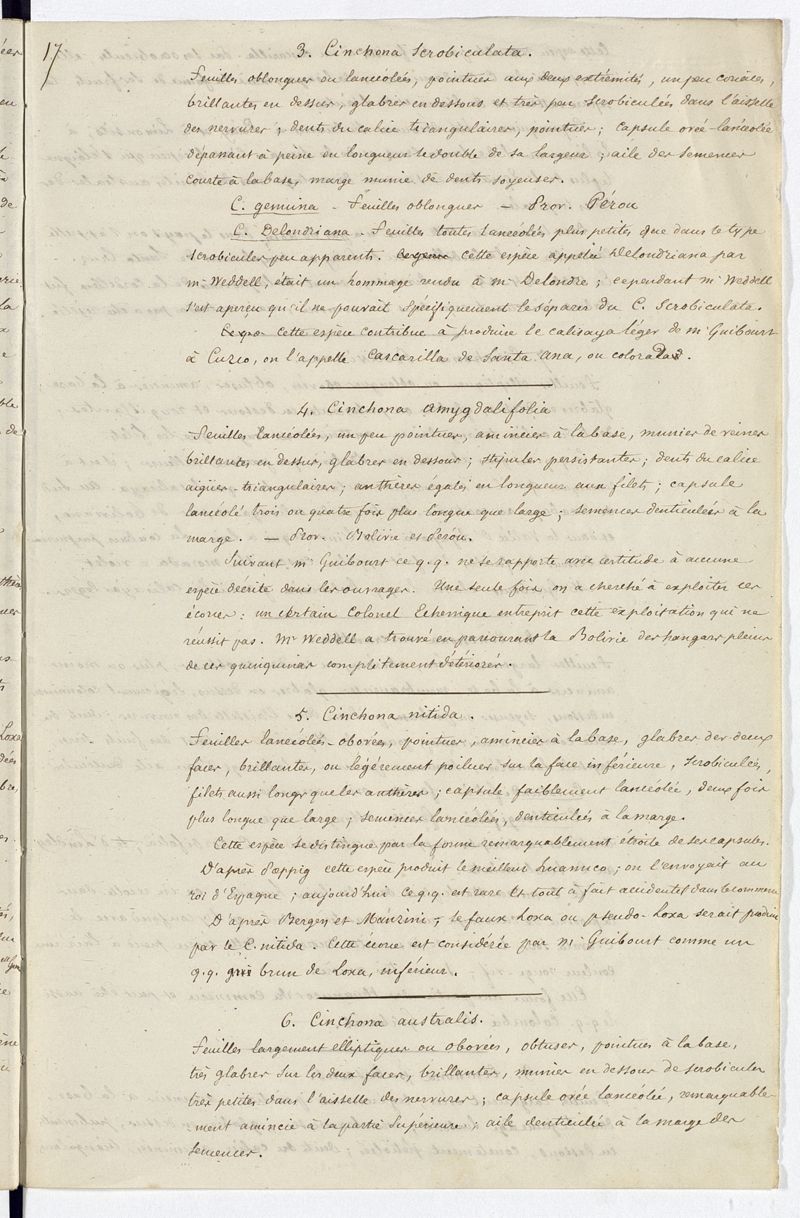 17
3. Cinchona Scrobiculata.
Feuilles oblongues ou lancéolées, pointues aux deux extrémité, un peu coriaces,
brillantes en dessus, glabres en dessous et très peu scrobiculées dans l'aisselle
des nervures; dents du calice triangulaires, pointues; capsule ovée-lancéolée
dépassant à peine en longueur le double de sa largeur; aile des semences
courte à la base, marge munie de dents soyeuses.
C. gemuina - Feuilles oblongues - Prov. Pérou
C. Delondriana - Feuilles toutes lancéolés plus petites que dans le type
scrobicules peu apparents. cette espèce appelée Delondriana par
mr Weddell, était un hommage rendu à mr Delondre; cependant mr Weddell
s'est aperçu qu'il ne pouvait spécifiquement le séparer du C. Scrobiculata.
cette espèce contribue à produire le calisaya léger de mr Guibourt
à Cuzco, on l'appelle Cascarilla de Santa Ana, ou colorada.
4. Cinchona amygdalifolia
Feuilles lancéolées, un peu pointues, amincies à la base, munies de veines
brillantes en dessus, glabres en dessous; stipules persistantes; dents du calice
aigues-triangulaires; anthères égales en longueur aux filets; capsule
lancéolé trois ou quatre fois plus longue que large; semences denticulées à la
marge. - Prov. Bolivie et Pérou.
Suivant mr Guibourt ce q.q. ne se rapporte avec certitude à aucune
espèce décrite dans les ouvrages. Une seule fois on a cherché à exploiter ces
écorces: un certain Colonel Echenique entreprit cette exploitation qui ne
réussit pas. Mr Weddell a trouvé en parcourant la Bolivie des hangars pleins
de ces quinquinas complètement détériorés.
5. Cinchona nitida.
Feuilles lancéolées-obovées, pointues, amincies à la base, glabres des deux
faces, brillantes, ou légèrement poilues sur la face inférieure, scrobiculées,
filets aussi longs que les anthères; capsule faiblement lancéolée, deux fois
plus longue que large; semences lancéolées, denticulées à la marge.
Cette espèce se distingue par la forme remarquablement étroite de ses capsules.
D'après Pœppig cette espèce produit le meilleur huanuco; on l'envoyait au
roi d'Espagne; aujourd'hui ce q.q. est rare et tout à fait accidentel dans le commerce
D'après Bergen et Manzini, le faux Loxa ou pseudo-Loxa serait produit
par le C. nitida. Cette écorce est considérée par mr Guibourt comme un
q.q. gris brun de Loxa, inférieur.
6. Cinchona australis.
Feuilles largement elliptiques ou obovées, obtuses, pointues à la base,
très glabres sur les deux faces, brillantes, munies en dessous de scrobicules
très petites dans l'aisselle des nervures; capsule ovée lancéolée, remarquable-
ment amincie à la partie supérieure; aile denticulée à la marge des
semences.